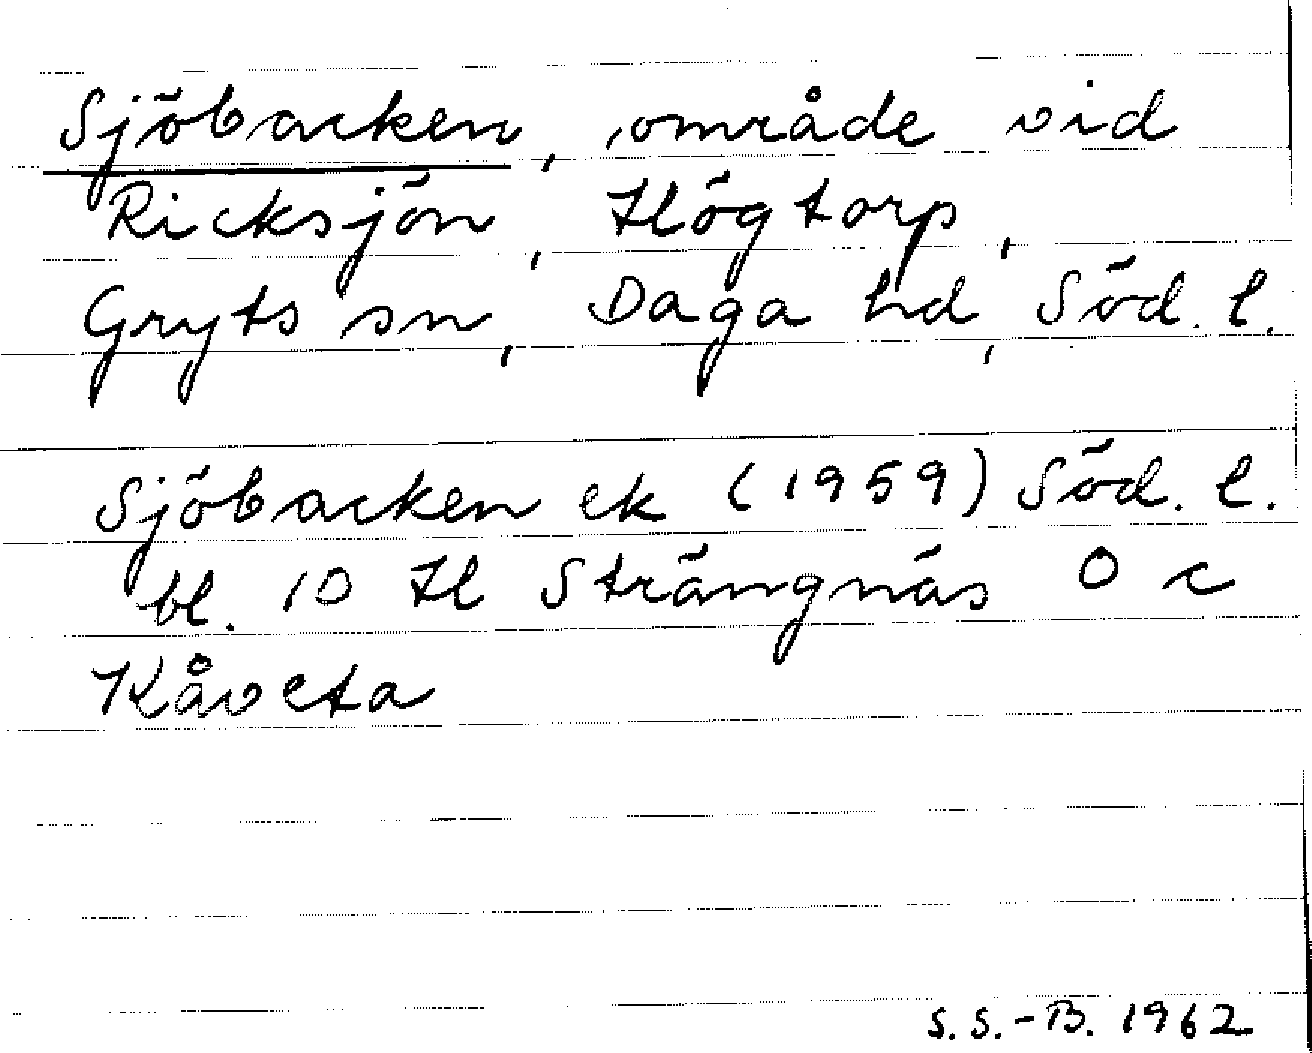 Sjöbacken, område vid
Ricksjön, Högtorp,
Gryts sn, Daga hd, Söd. l.
Sjöbacken ek (1959) Söd. l.
bl. 10 H Strängnäs O c
Kåveta
S. S.-B. 1962